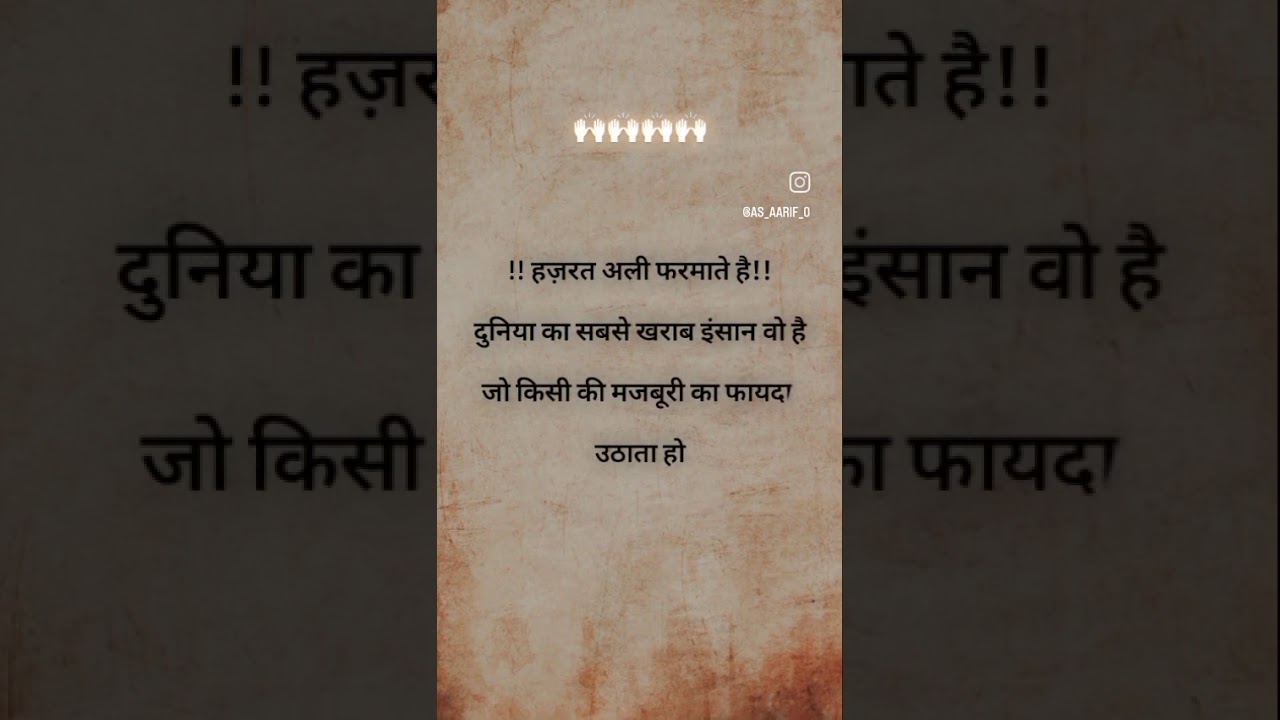 🙌🙌🙌🙌
@AS_AARIF_0
!! हज़रत अली फरमाते है!!
दुनिया का सबसे खराब इंसान वो है
जो किसी की मजबूरी का फायदा
उठाता हो